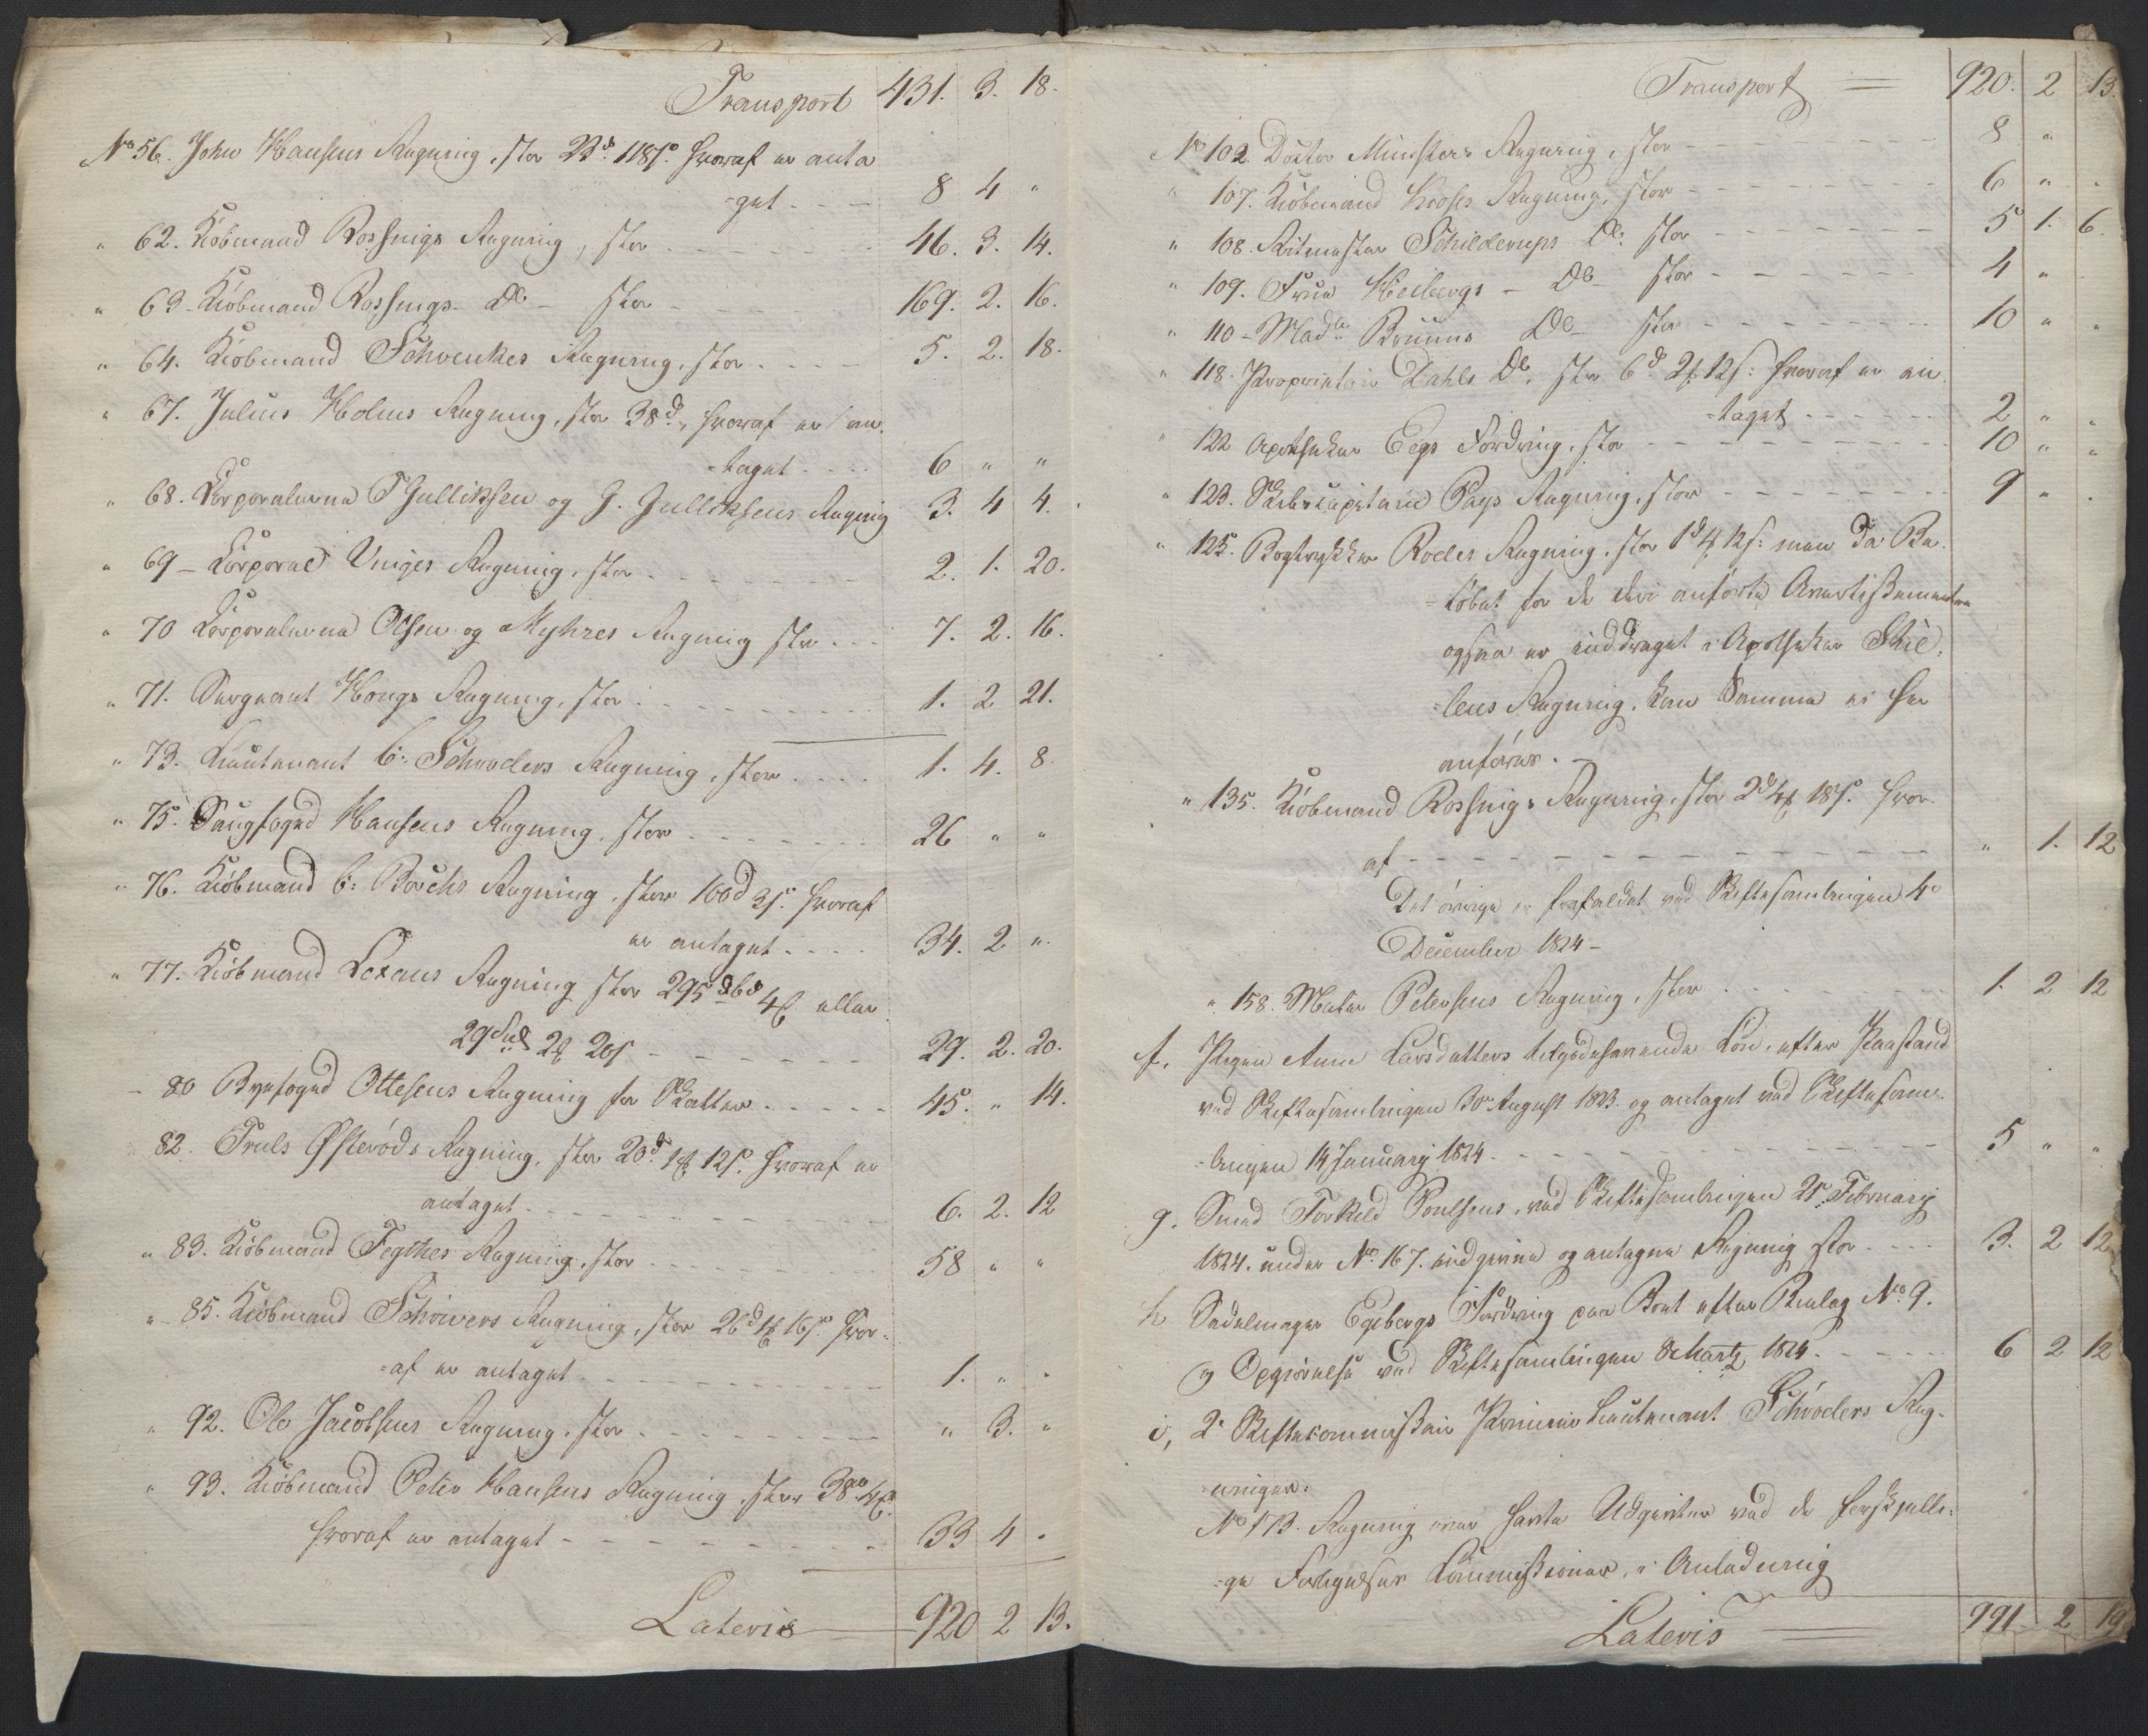 Transport 431. 3. 18.
No 56. John Hansens Regning, stor 23d. 118s. hvoraf er anta
=get - - - 8 4 "
" 62. Kiöbmand Rossings Regning, stor - - - 46. 3. 14.
" 63. Kiöbmand Rossings Do - stor - - - 169. 2. 16.
" 64. Kiöbmand Schwenkes Regning, stor - - - 5. 2. 18.
" 67. Julius Holms Regning, stor 38d., hvoraf er an
=taget - - - 6 " "
" 68. Corporalerne T Gulliksen og G. Gulliksens Regnig 3. 4 4.
" 69 - Corporal Unges Regning, stor - - - 2. 1. 20.
" 70 Corporalerne Olsen og Myhres Regning stor - - - 7. 2. 16.
" 71. Sergeant Hougs Regning, stor - - - 1. 2 21.
" 73. Lieutenant C: Schrøders Regning, stor - - - 1. 4. 8.
" 75. Taugfoged Hansens Regning, stor - - - 26 " "
" 76. Kiöbmand C: Borchs Regning, stor 100d 3s. hvoraf
er antaget - - - 34. 2 "
" 77. Kiöbmand Lexaus Regning stor 295 4 eller
29 2 20s - - - 29. 2. 20.
- 80 Byefoged Ottesens Regning for Skatter - - - 45. " 14.
82. Truls Østeröds Regning, stor 20d. 1 12s. hvoraf er
antaget - - - 6. 2. 12
" 83. Kiöbmand Fegthes Regning, stor - - - 58 " "
" 85. Kiöbmand Schrivers Regning, stor 26d 1 16s. hvor=
=af er antaget - - - 1. " "
" 92. Ole Jacobsens Regning, stor - - - " 3. "
" 93. Kiöbmand Peter Hansens Regning, stor 38d 4
hvoraf er antaget - - - 33 4 "
Lateris 920 2 13.
Transport = 920. 2 13.
No 102. Doctor Münsters Regning, stor - - - 8 "
" 107. Kiöbmand Krohs Regning, stor - - - 6 " "
" 108. Ritmester Schilderups Do: stor - - - 5 1. 6.
" 109. Frue Heibergs - Do - stor - - - 4 "
" 110 - Made Bruuns Do - stor - - - 10 " "
" 118. Proprietair Dahls Do, stor 6d 2 12s: hvoraf er an
=taget - - - 2 " "
" 122 Apotheker Eegs Fordring, stor - - - 10 " "
" 123. Skibscapitain Pays Regning, stor - - - 9 " "
" 125. Bogtrykker Roeles Regning, stor 1d 4 12s: men da Be
=löbet for de deri anførte Avertissementer
ogsaa er inddraget i Apotheker Thie=
=lens Regning, kan Samme ei her
anføres. -
" 135. Kiöbmand Rossings Regning, stor 2d 4 18s. hvor
af - - - " 1. 12
Det övrige er frafaldet ved Skiftesamlingen 4e
December 1824 -
" 158. Maler Petersens Regning, stor - - - 1. 2 12
f, Pigen Anne Larsdatters tilgodehavende Løn, efter Paastand
ved Skiftesamlingen 30e August 1823. og antaget ved Skiftesam
=lingen 14 January 1824. - - - 5 " "
g. Smed Torkild Poulsens, ved Skiftesamlingen 25 February
1824. under No. 167. indgivne og antagne Regning stor - - - 3. 2 12
h Sadelmager Egebergs Fordring paa Boet efter Beilag No 9.
og Opgivelse ved Skiftesamlingen 8 Martz 1824. - - - 6 2 12
i, 2e Skiftekommissair Premier Lieutenant Schrøders Reg=
=ninger.
No 113. Regning over havte Udgivter ved de forskjelli=
=ge Forligelses Commissioner, i Anledning
Lateris = 991. 2 19